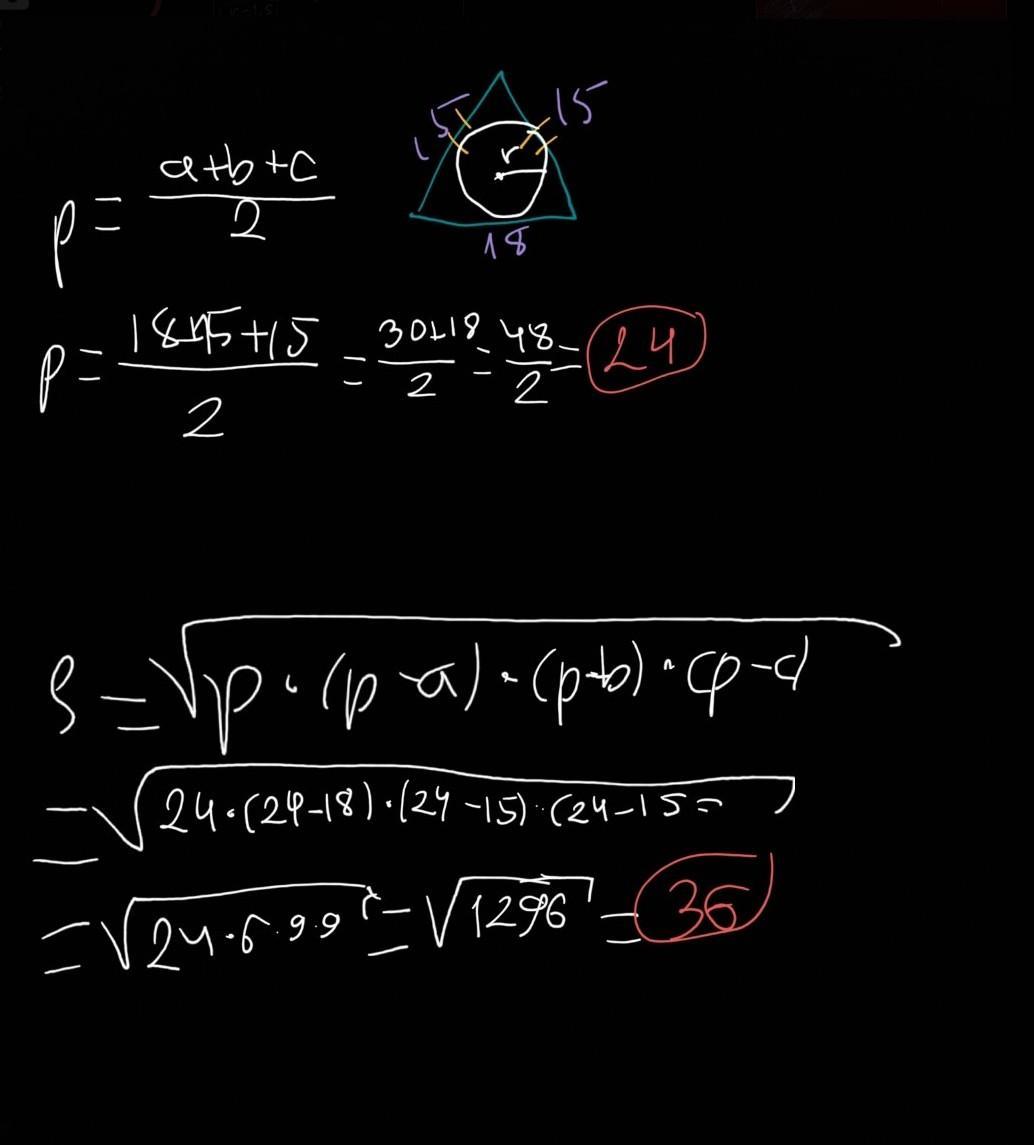 15
15
r
18
p = a+b+c / 2
p = 18+15+15 / 2 = 30+18 / 2 = 48 / 2 = 24
S = √p · (p-a) · (p-b) · (p-c)
= √24·(24-18)·(24-15)·(24-15=
= √24·6·9·9 = √1296 = 36